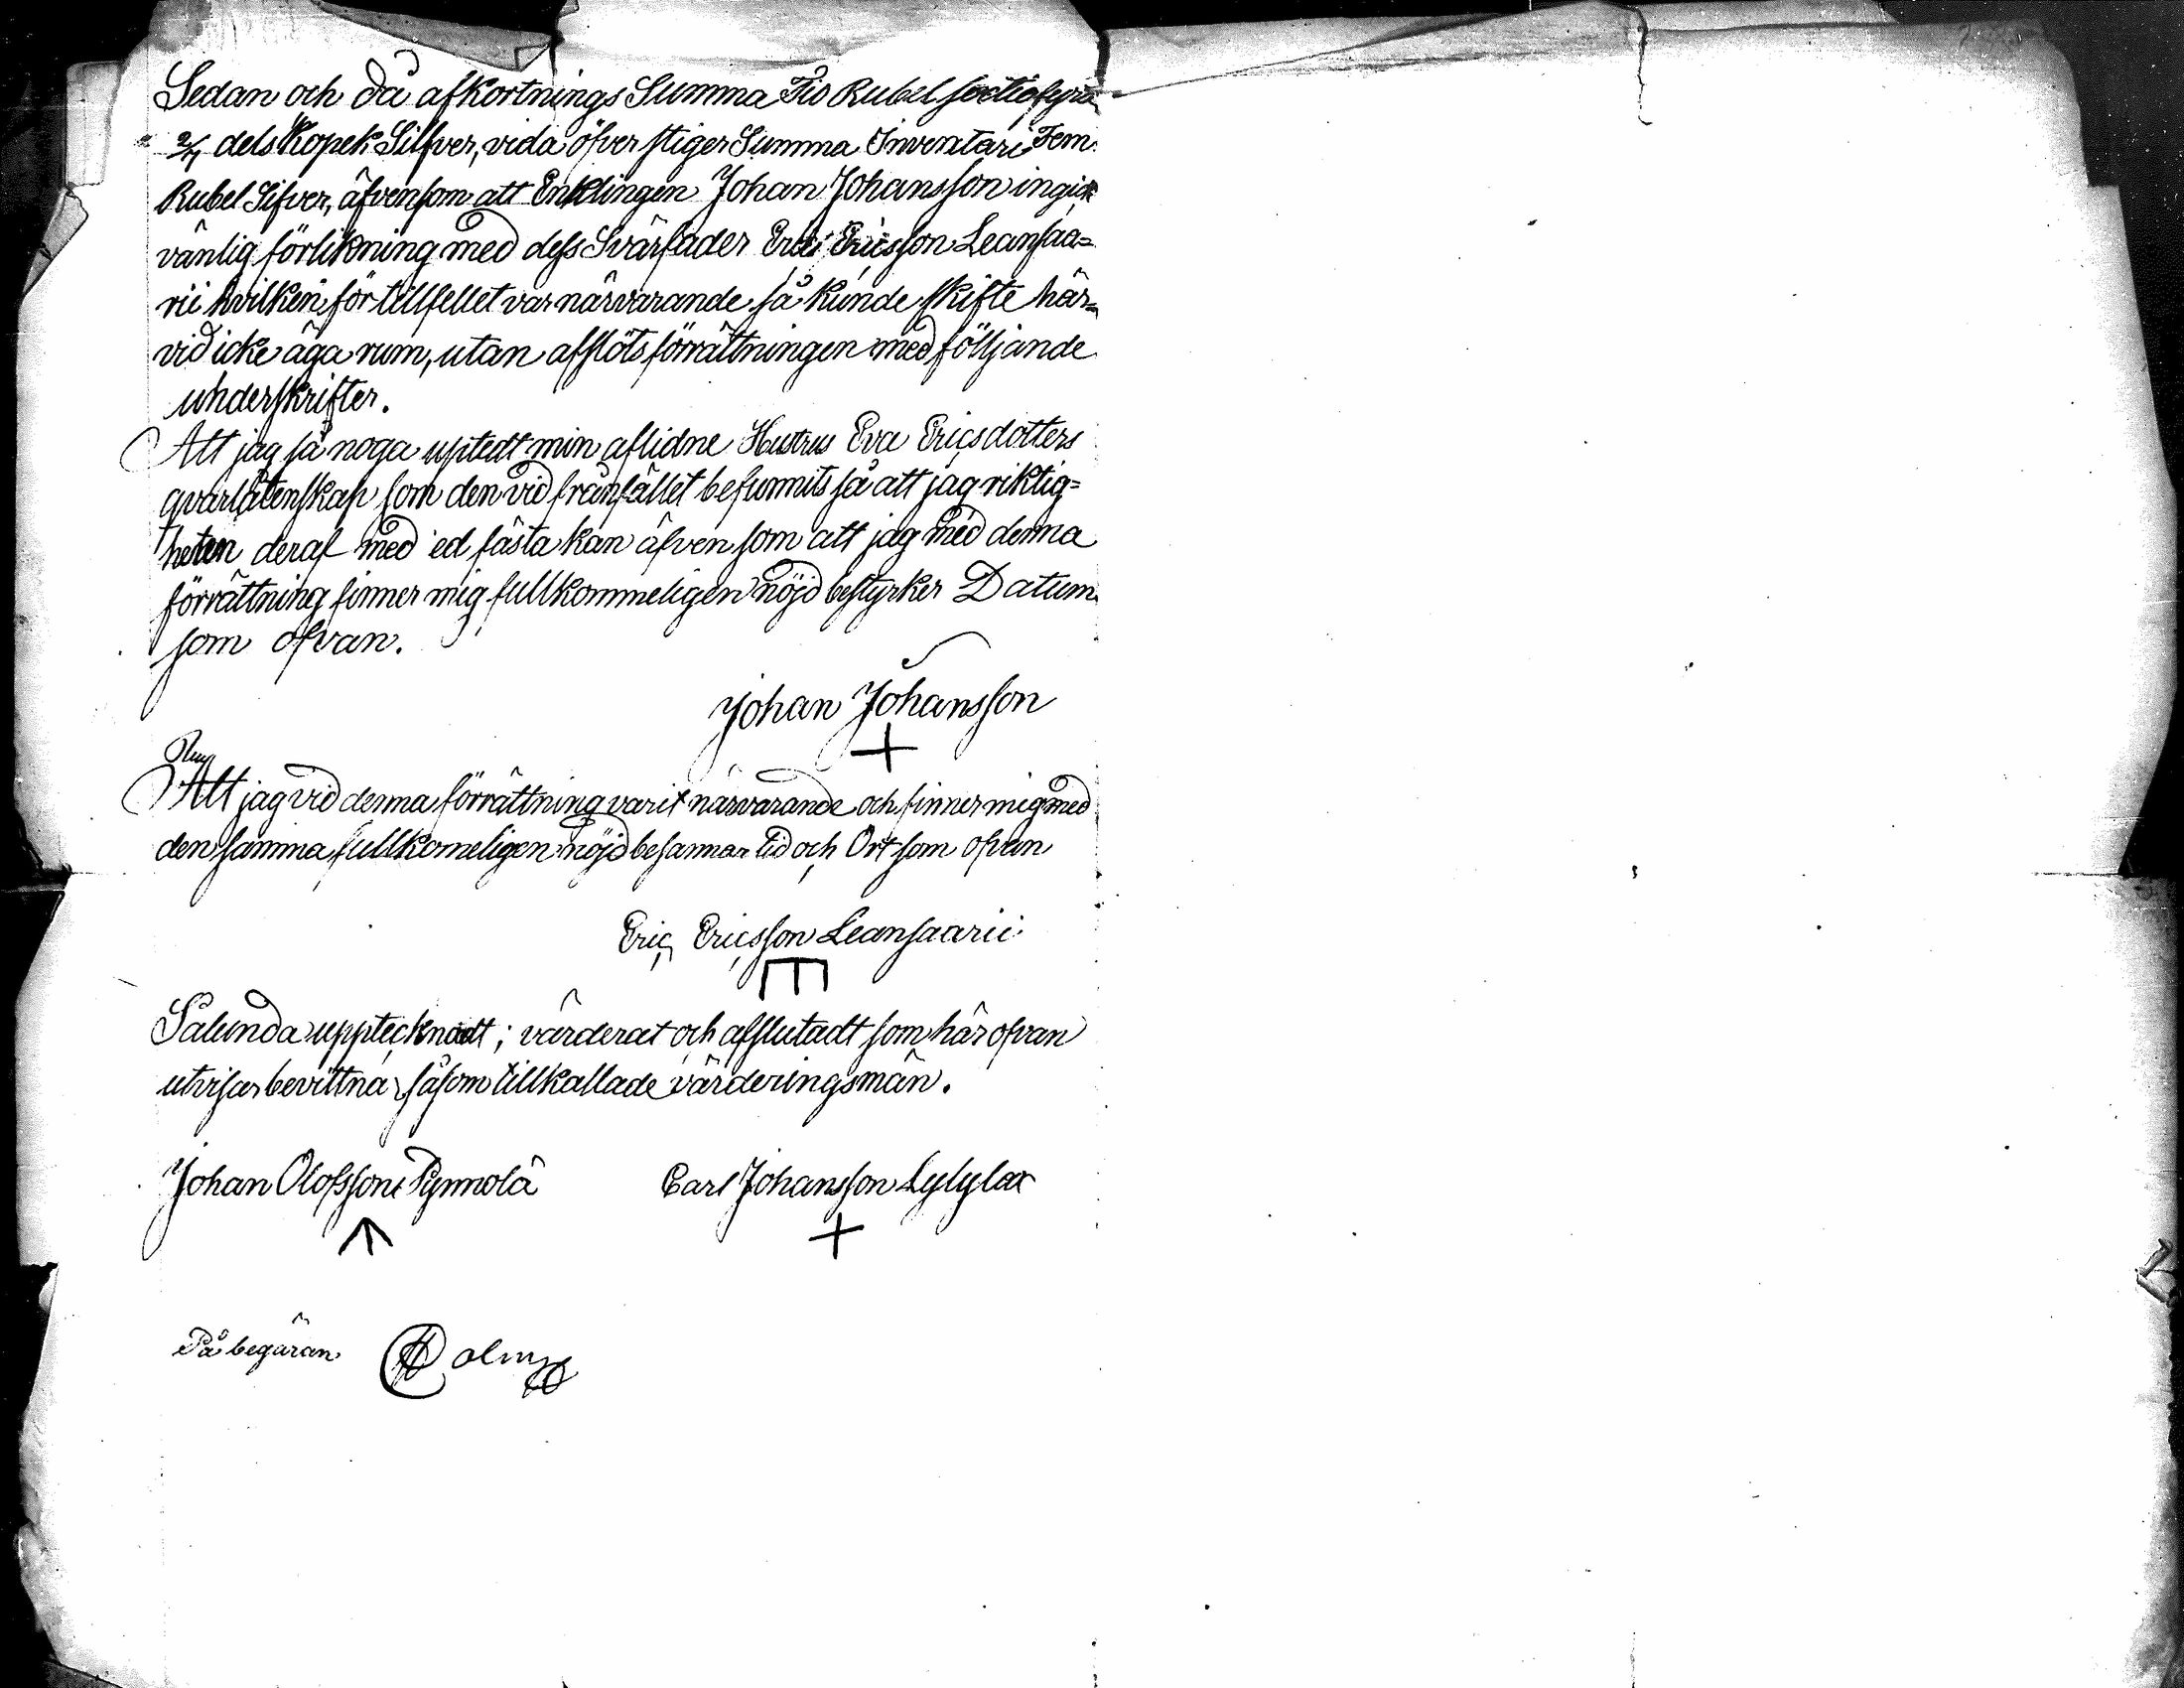 Sedan och då afkortnings Summa Tio Rubel sextiofyra
2/7 dels Kopek Silfver, vida öfver stiger Summa Inventarii Fem
Rubel Silfver, äfvensom att Enklingen Johan Johansson ingick
vänlig förlikning med dess Svärfader Eric Ericsson Leansaa=
rii hvilken för tillfellet var närvarande så kunde skifte här=
vid icke äga rum, utan afslöts förrättningen med följande
underskrifter.
Att jag så noga uptedt min aflidne Hustrus Eva Ericsdotters
qvarlåtenskap som den vid frånfället befunnits så att jag riktig=
heten deraf med ed fästa kan äfven som att jag med denna
förrättning finner mig fullkommeligen nöjd bestyrker Datum
som ofvan.
Johan Johansson
Att jag vid denna förrättning varit närvarande och finner mig med
den samma fullkomeligen nöjd besannar tid och Ort som ofvan
Eric Ericsson Leansaarii
Sålunda upptecknadt; värderat och afslutadt som här ofvan
utvisas bevittna såsom tillkallade värderingsmän.
Johan Olofsson Pynnolä Carl Johansson Lylylax
På begäran Holm